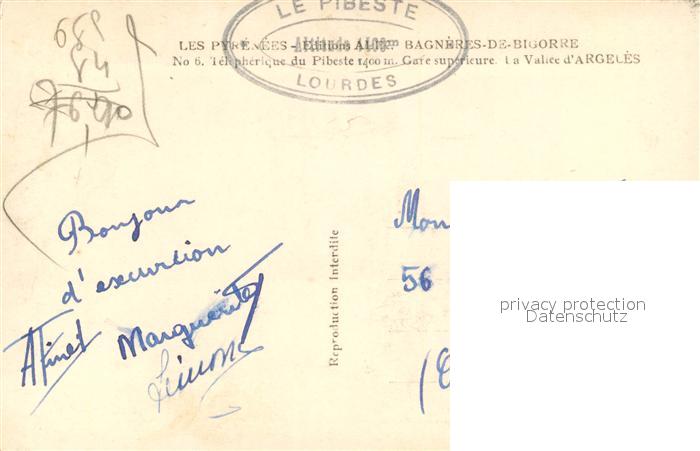 LE PIBESTE
LOURDES
LES PYRÉNÉES - Editions BAGNÈRES-DE-BIGORRE
No 6. Téléphérique du Pibeste 1400 m. Gare supérieure. La Vallée d'ARGELÈS
Bonjour
d'excursion
Marguerite
Reproduction Interdite
Mon
56
privacy protection
Datenschutz